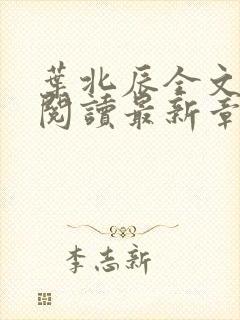 葉北辰全文
閱讀最新章
李志新